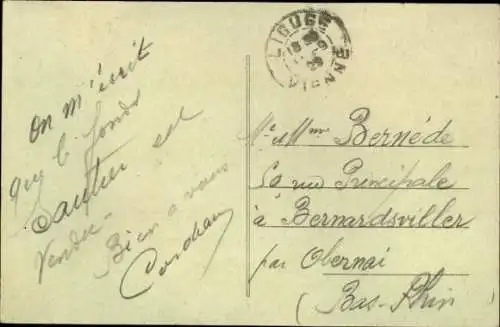 On m'écrit
que le fonds
Gautier est
vendu -
Bien a vous
LIGUGÉ
VIENNE
Mr et Mme Bernède
50 rue Principale
à Bernardsviller
par Obernai
(Bas-Rhin)